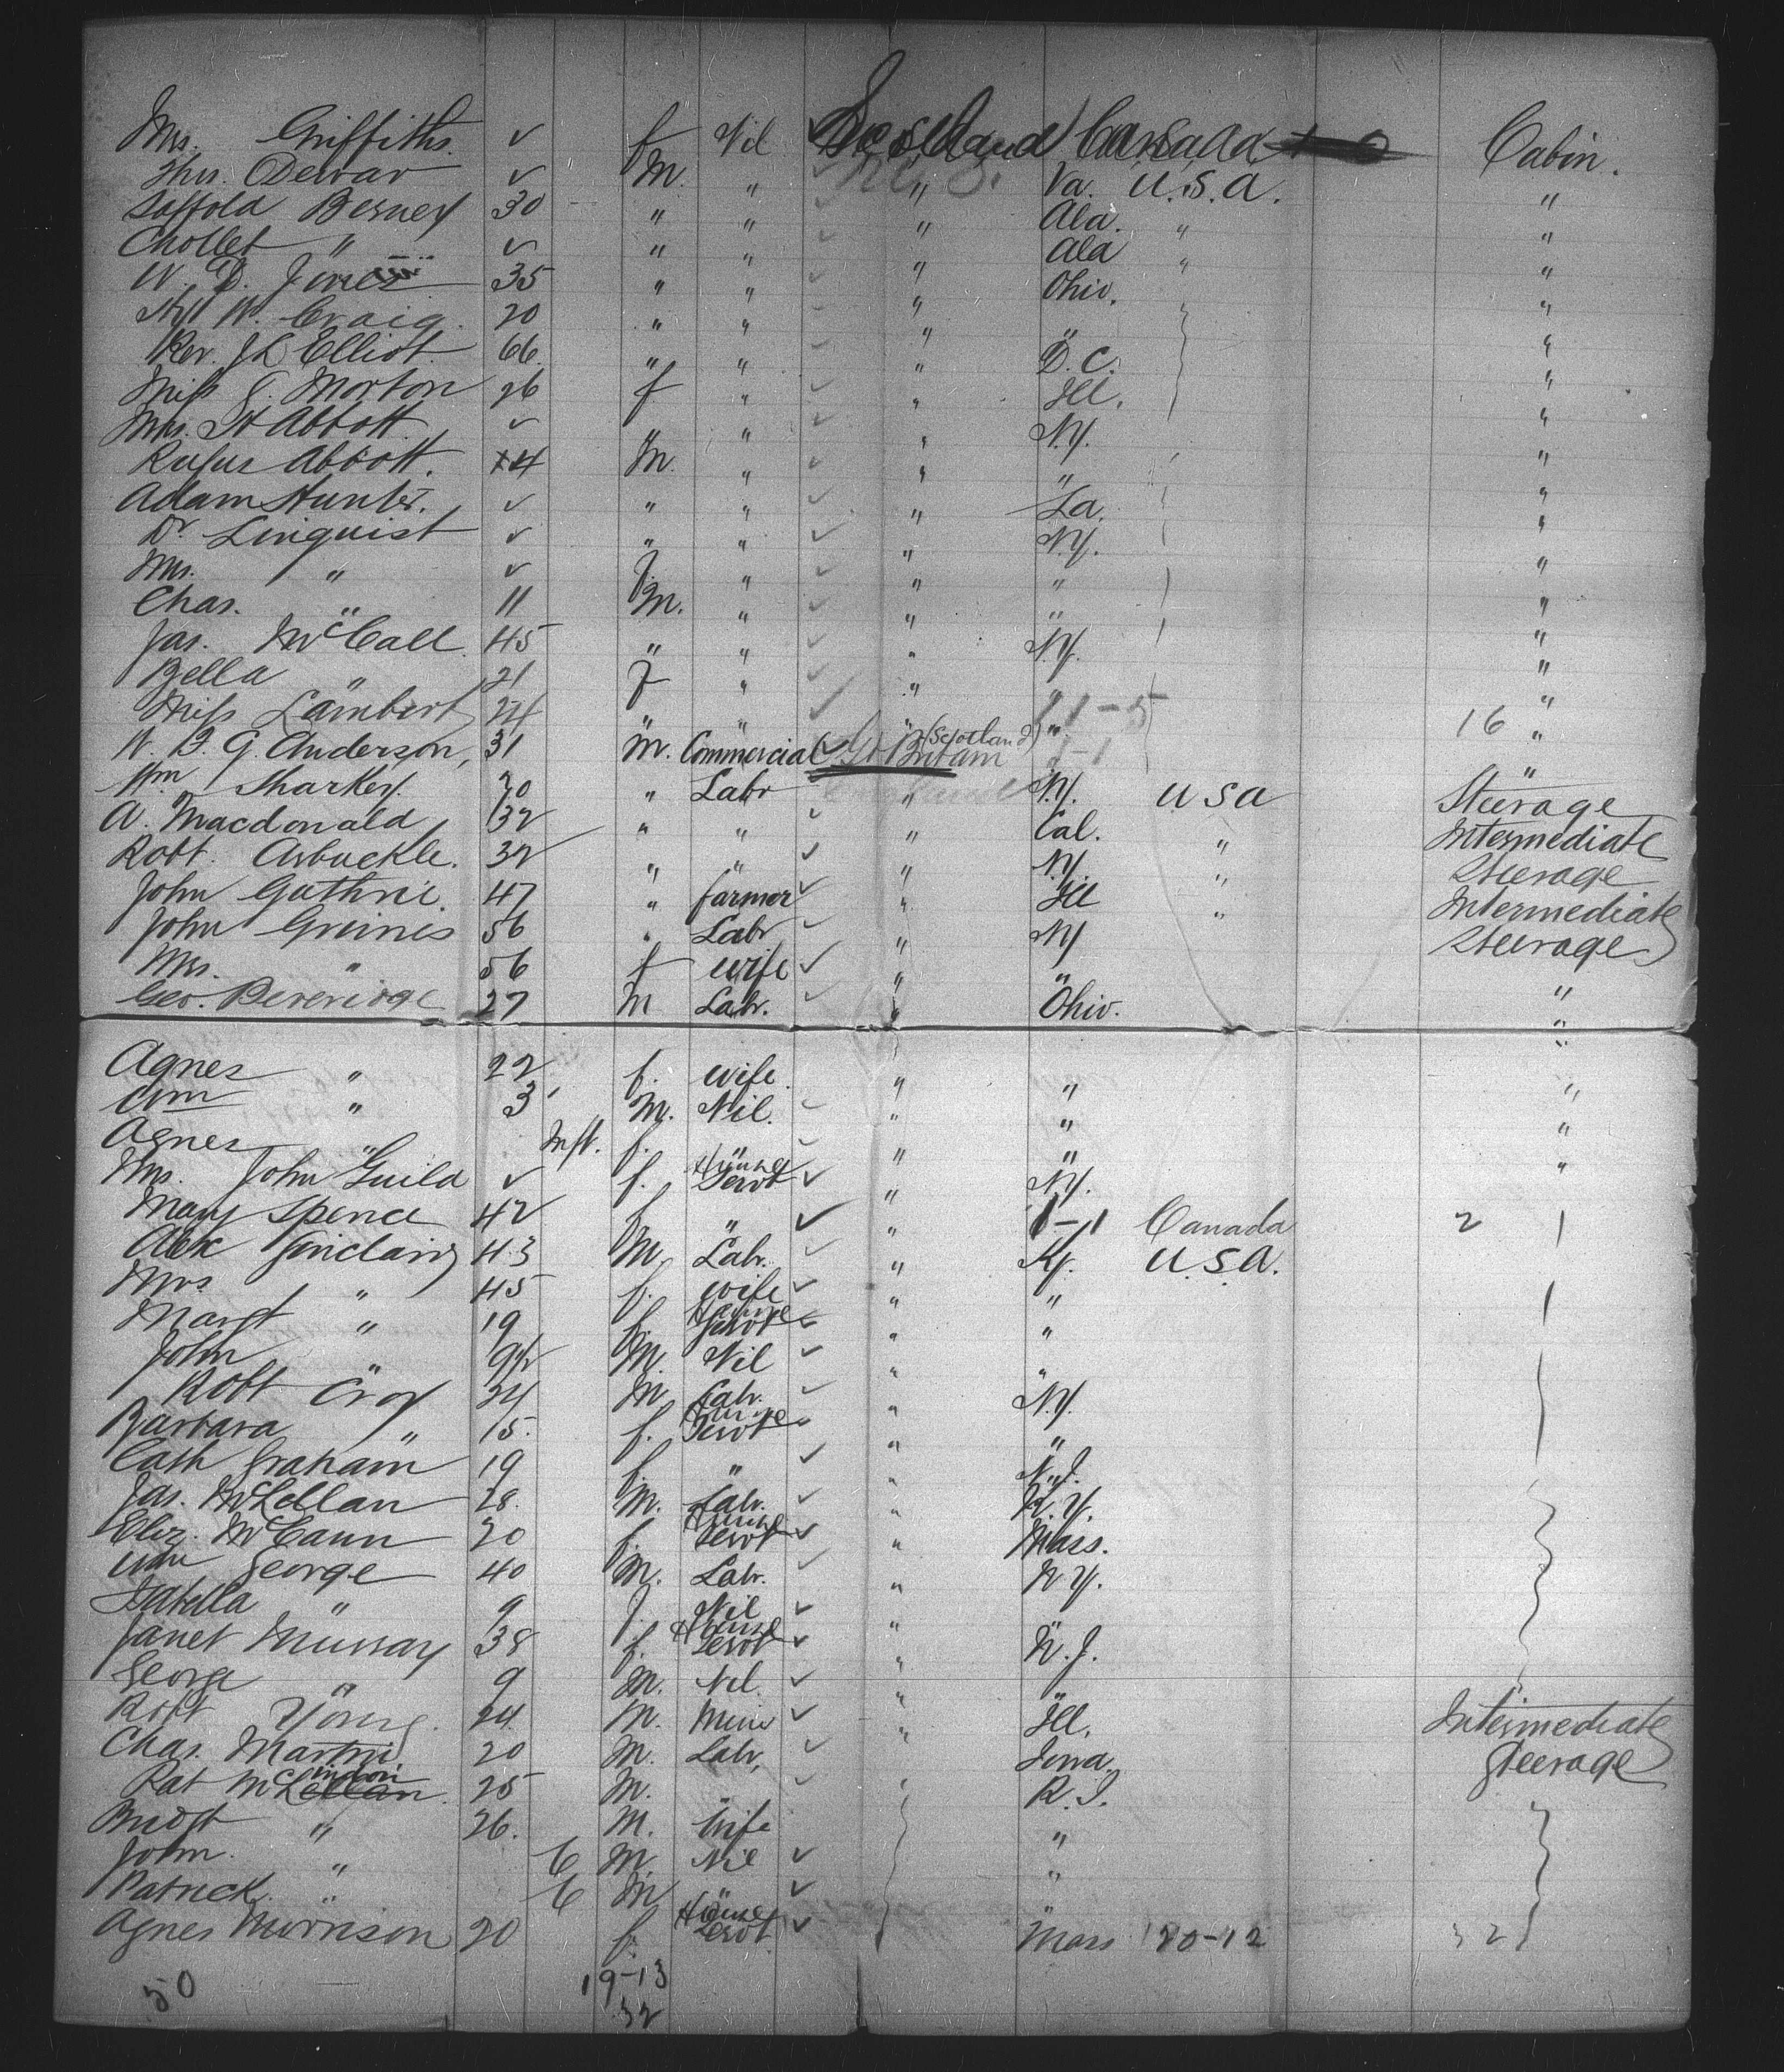 Mrs. Griffiths. ✓ f Nil ✓ Scotland Canada Cabin.
Thos. Dewar ✓ M. " ✓ " Va. U.S.A. "
Saffold Berney 30 " " ✓ " Ala. " "
Chollet " ✓ " " ✓ " Ala " "
W. D. Jones 35 " " ✓ " Ohio. "
W. Craig. 20 " " ✓ " " "
Rev. J L Elliot. 66. " " ✓ " D.C. "
Miss Morton 26 f " ✓ " Ill. "
Mrs. Abbott. ✓ " " ✓ " N.Y. "
Rufus Abbott. 14 M. " ✓ " " "
Adam Hunter. ✓ " " ✓ " La. "
Dr Linquist ✓ " " ✓ " N.Y. "
Mrs. " ✓ f. " ✓ " " "
Chas. " 11 M. " ✓ " " "
Jas. McCall 45 " " ✓ " N.Y. "
Bella " 21 f " ✓ " " "
Miss Lambert 24 " " ✓ " " 11-5 16 "
W. F. G. Anderson, 31 M. Commercial ✓ Gt Britain (Scotland) 1-1
Wm Sharkey. 20 " Labr ✓ " N.Y. USA Steerage
A. Macdonald 32 " " ✓ " Cal. " Intermediate
Robt. Arbuckle. 32 " " ✓ " N.Y. " Steerage
John Guthrie. 47 " farmer ✓ " Ill " Intermediate
John Grimes 56 " Labr ✓ " NY Steerage
Mrs. " 56 f wife ✓ " " "
Geo. Beveridge 27 M Labr. ✓ " Ohio. "
Agnes " 22 f. wife " " "
Wm " 3 M. Nil. ✓ " " "
Agnes " Inft. f. " ✓ " " "
Mrs. John Guild ✓ f. House Servt ✓ " N.Y.
Mary Spence 42 f " ✓ " 1-1 Canada 2
Alex Sinclair 43 M. Labr. ✓ " Ky. U.S.A.
Mrs " 45 f. wife ✓ " "
Margt " 19 f. House Servt ✓ " "
John " 9½ M. Nil ✓ " "
Robt Croy 24 M. Labr. ✓ " N.Y.
Barbara " 15. f. House Servt ✓ " "
Cath Graham 19 f. " ✓ " N.J.
Jas. McLellan 28. M. Labr. ✓ " N.Y.
Eliz. McCann 20 f. House Servt ✓ " Mass.
Wm George 40 M. Labr. ✓ " N.Y.
Isabella " 9 f. Nil ✓ " "
Janet Murray 38 f. House Servt ✓ " N.J.
George " 9 M. Nil ✓ " "
Robt Young. 24. M. Miner ✓ " Ill. Intermediate
Chas. Martin 20 M. Labr. ✓ Iowa. Steerage
Pat McLellan 25 M. " ✓ R.I.
Bridgt " 26. M. Wife "
John. " 6 M. Nil ✓ "
Patrick. " 6 M " ✓ "
Agnes Morrison 20 f. House Servt ✓ Mass 20-12 32
50 19-13
32